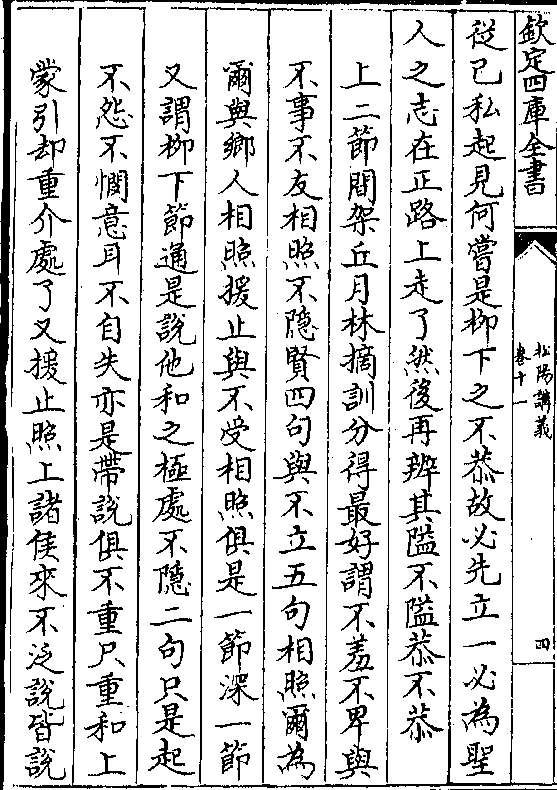 欽定四庫全書
松陽講義
卷十一
四
從已私起見何嘗是柳下之不恭故必先立一必為聖
人之志在正路上走了然後再辨其隘不隘恭不恭
上二節間架丘月林摘訓分得最好謂不羞不卑與
不事不友相照不隱賢四句與不立五句相照爾為
爾與鄉人相照援止與不受相照俱是一節深一節
又謂柳下節通是說他和之極處不隱二句只是起
不怨不憫意耳不自失亦是帶說俱不重只重和上
蒙引却重介處了又援止照上諸侯來不泛說皆說